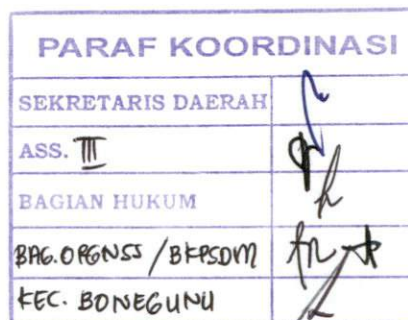 PARAF KOORDINASI
SEKRETARIS DAERAH
ASS. III
BAGIAN HUKUM
BAG. ORGNSS / BKPSDM
KEC. BONEGUNU